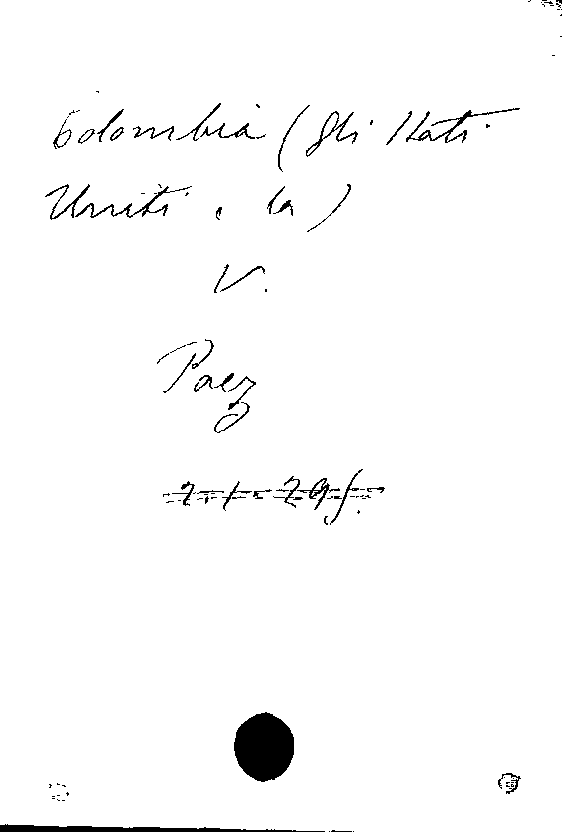 Colombia (Gli Stati
Uniti e la)
V.
Paez
2. 1. 29 f.